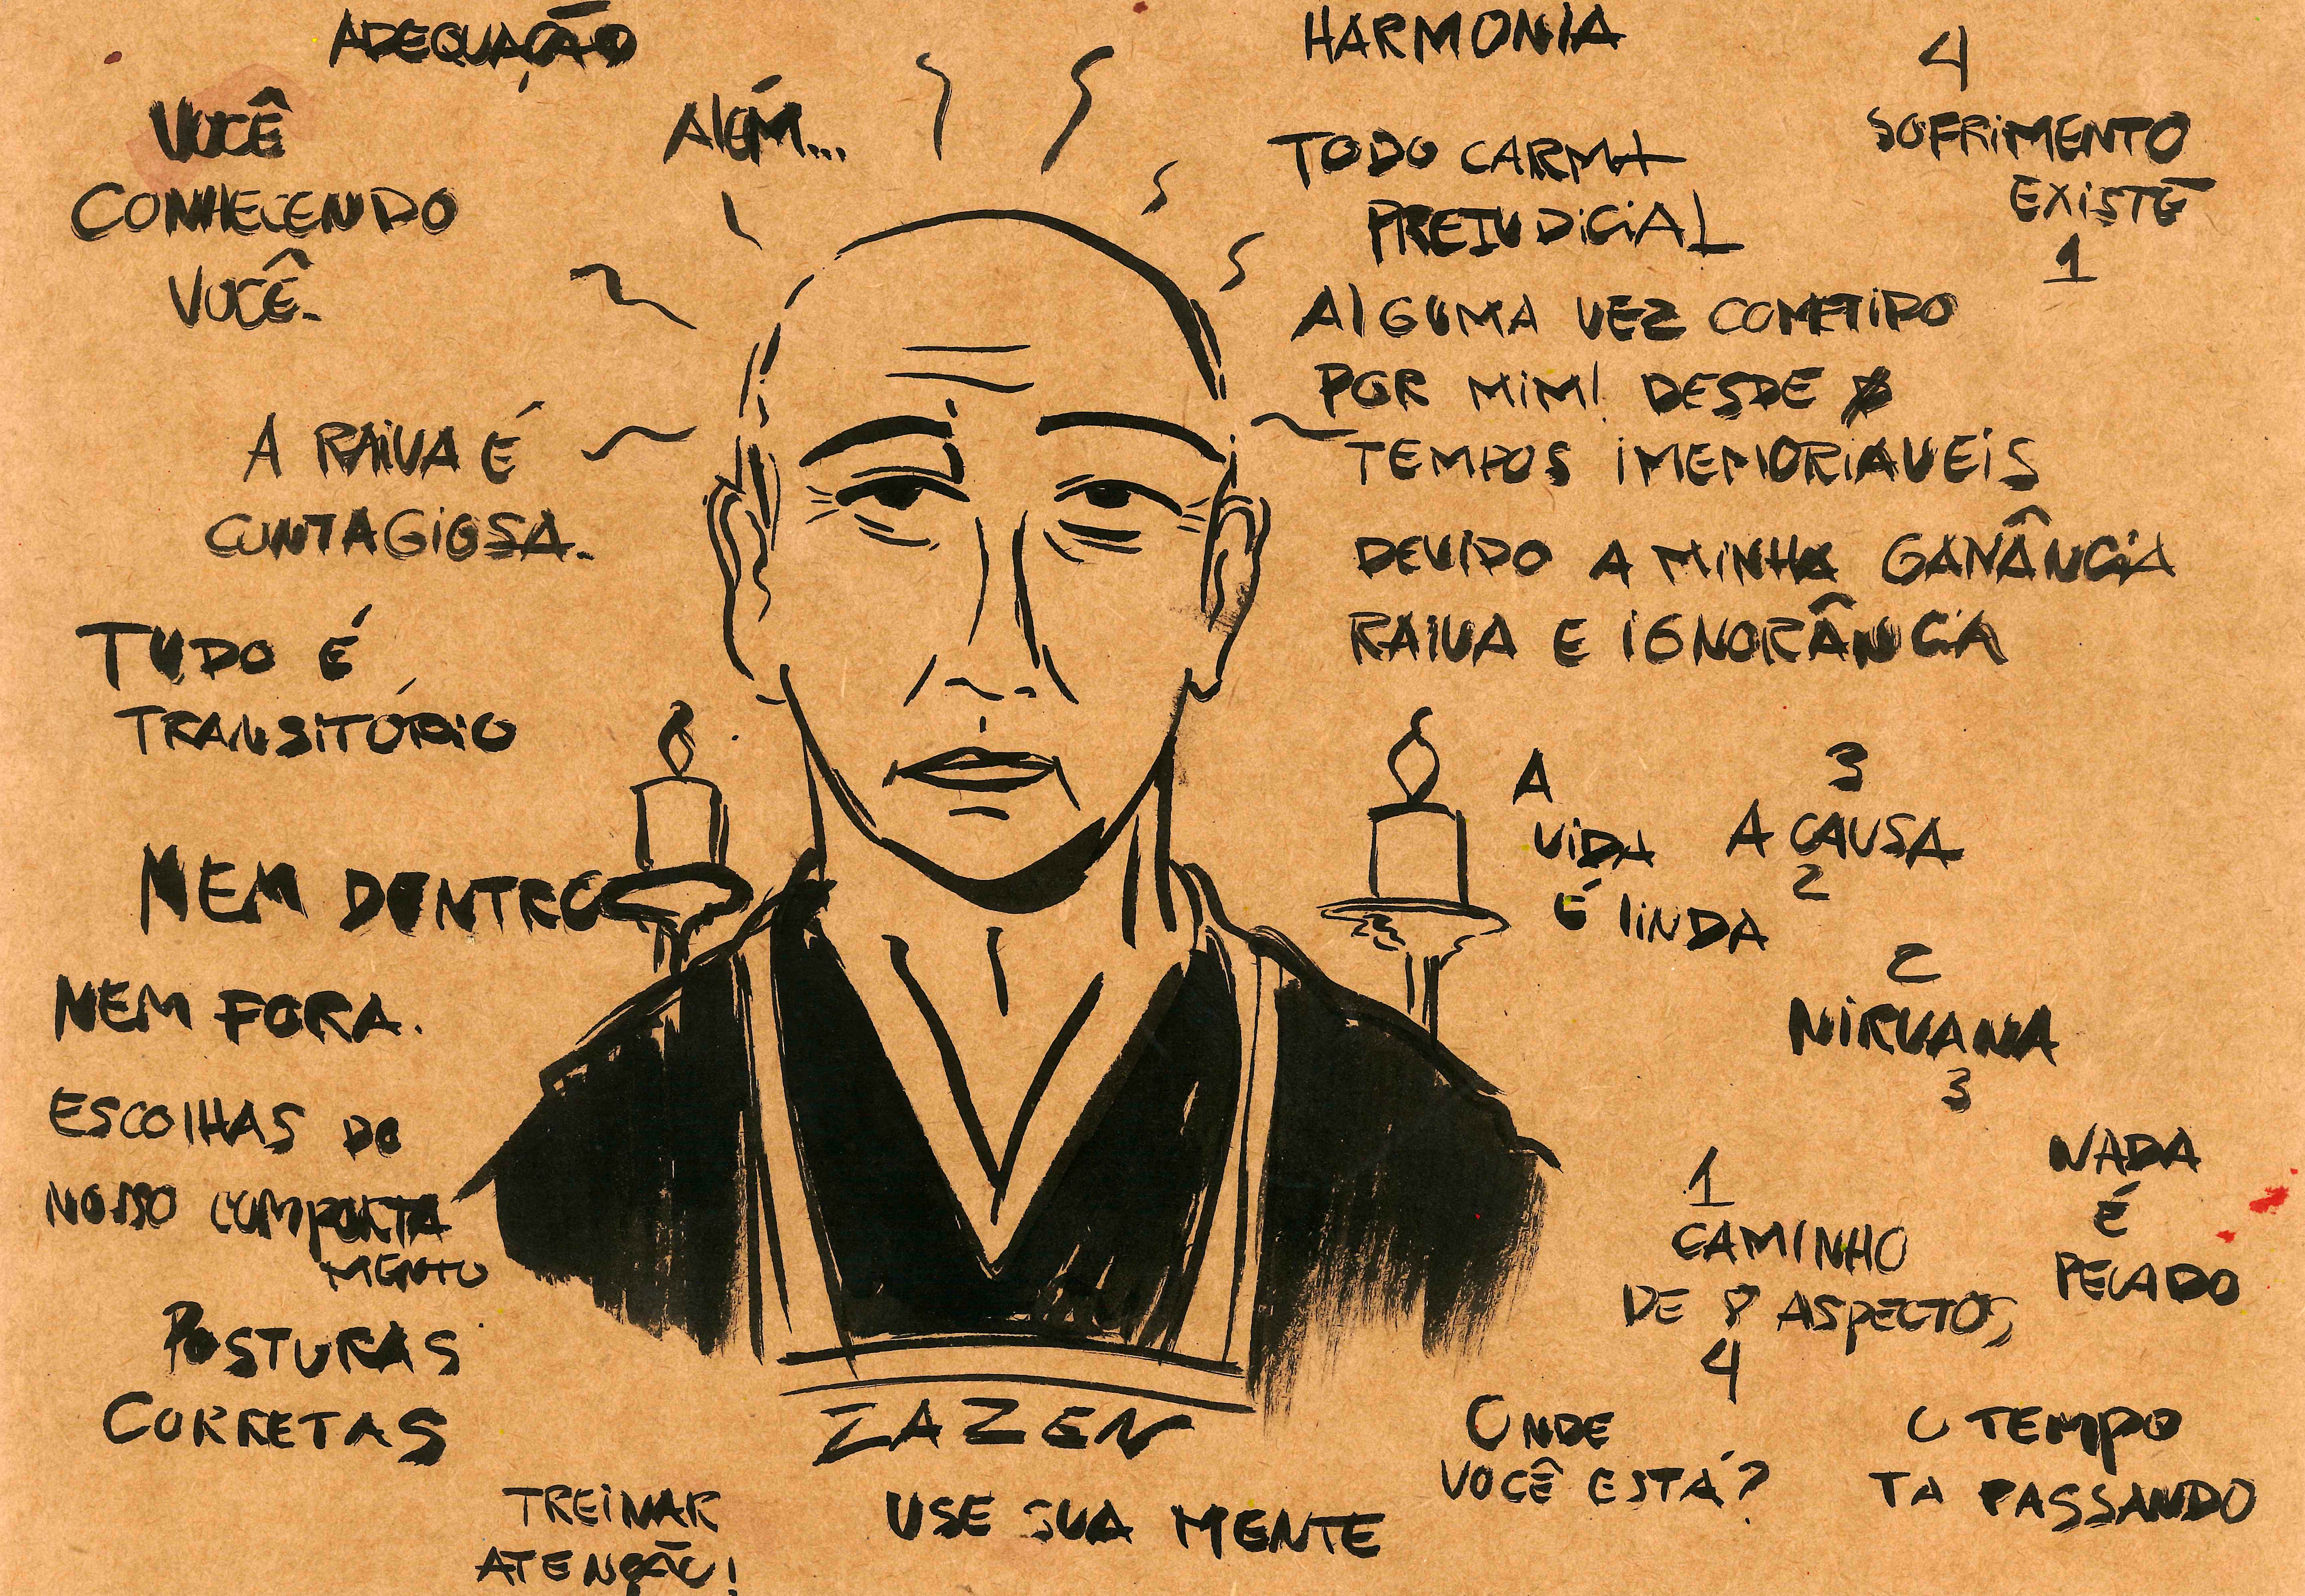 ADEQUAÇÃO
VOCÊ
CONHECENDO
VOCÊ.
ALÉM...
A RAIVA É
CONTAGIOSA.
TUDO É
TRANSITÓRIO
NEM DENTRO
NEM FORA.
ESCOLHAS DO
NOSSO COMPORTA
MENTO
POSTURAS
CORRETAS
TREINAR
ATENÇÃO!
ZAZEN
USE SUA MENTE
HARMONIA
TODO CARMA
PREJUDICIAL
ALGUMA VEZ COMETIDO
POR MIM! DESDE
TEMPOS IMEMORIAVEIS
DEVIDO A MINHA GANÂNCIA
RAIVA E IGNORÂNCIA
4
SOFRIMENTO
EXISTE
1
A
VIDA
É LINDA
3
A CAUSA
2
2
NIRVANA
3
1
CAMINHO
DE 8 ASPECTOS
4
NADA
É
PECADO
ONDE
VOCÊ ESTÁ?
O TEMPO
TA PASSANDO